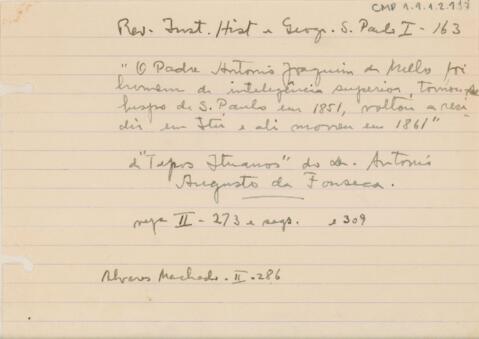 CMP 1.1.1.2.117
Rev. Inst. Hist e Geogr. S. Paulo I - 163
"O Padre Antonio Joaquim de Mello foi
homem de inteligência superior, tornou-se
bispo de S. Paulo em 1851, voltou a resi
dir em Itú e ali morreu em 1861"
d "Tipos Ituanos" do Dr. Antonio
Augusto da Fonseca.
veja II - 273 e segs. e 309
Alvares Machado - II - 286